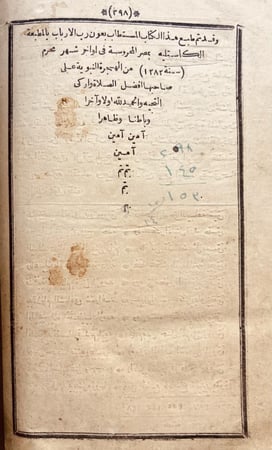 *(٢٩٨)*
وقد تم طبع هذا الكتاب المستطاب بعون رب الارباب بالمطبعة
الكاستليه بمصر المحروسة فى اواخر شهر محرم
(سنة ١٢٨٢) من الهجرة النبوية على
صاحبها افضل الصلاة وازكى
التحيه والحمد لله اولا وآخرا
وباطنا وظاهرا
آمين آمين
آمين
تم تم
تم
١٤٥